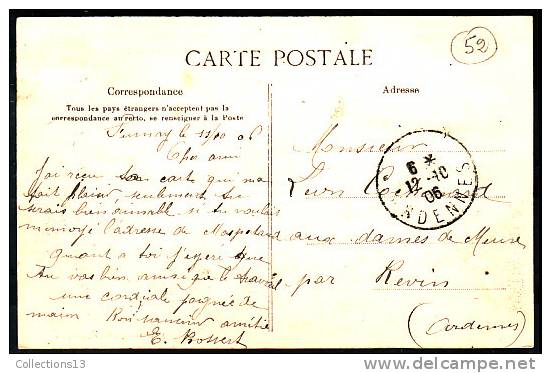 52
CARTE POSTALE
Correspondance
Adresse
Tous les pays étrangers n'acceptent pas la
correspondance au recto, se renseigner à la Poste
Fumay le 11/10 06
Cher ami
J'ai reçu ton carte qui m'a
fait plaisir, seulement tu
serais bien aimable si tu voulais
m'envoyé l'adresse de
quant a toi j'espère que
tu vas bien ainsi que le travail
une cordiale poignée de
main Bon amitié
E. Bossert
Monsieur
Léon
aux dames de Meuse
par Revin
(Ardennes)
6 *
12 -10
06
ARDENNES
Collections13
http://www.delcampe.net